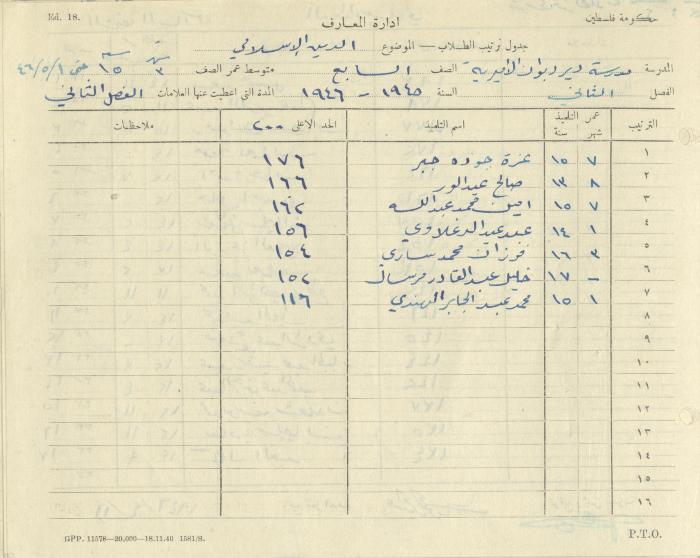 Ed. 18.
حكومة فلسطين
ادارة المعارف
جدول ترتيب الطلاب — الموضوع الدين الإسلامي
المدرسة مدرسة دير ديوان الأميرية الصف السابع متوسط عمر الصف شهر ٣ سنة ١٥ حتى ٤٦/٥/١
الفصل الثاني السنة ١٩٤٥ – ١٩٤٦ المدة التي اعطيت عنها العلامات الفصل الثاني
الترتيب عمر التلميذ شهر سنة اسم التلميذ الحد الاعلى ٢٠٠ ملاحظات
١ ٧ ١٥ عزة جوده جبر ١٧٦
٢ ٨ ١٣ صالح ١٦٦
٣ ٧ ١٥ امين محمد عبدالله ١٦٢
٤ ١ ١٤ ١٥٦
٥ ٣ ١٦ محمد ساري ١٥٤
٦ – ١٧ خليل عبدالقادر مرسال ١٥٢
٧ ١ ١٥ محمد عبد الجابر الهندي ١١٦
٨
٩
١٠
١١
١٢
١٣
١٤
١٥
١٦
GPP. 11578—20,000—18.11.40 1581/S.
P.T.O.